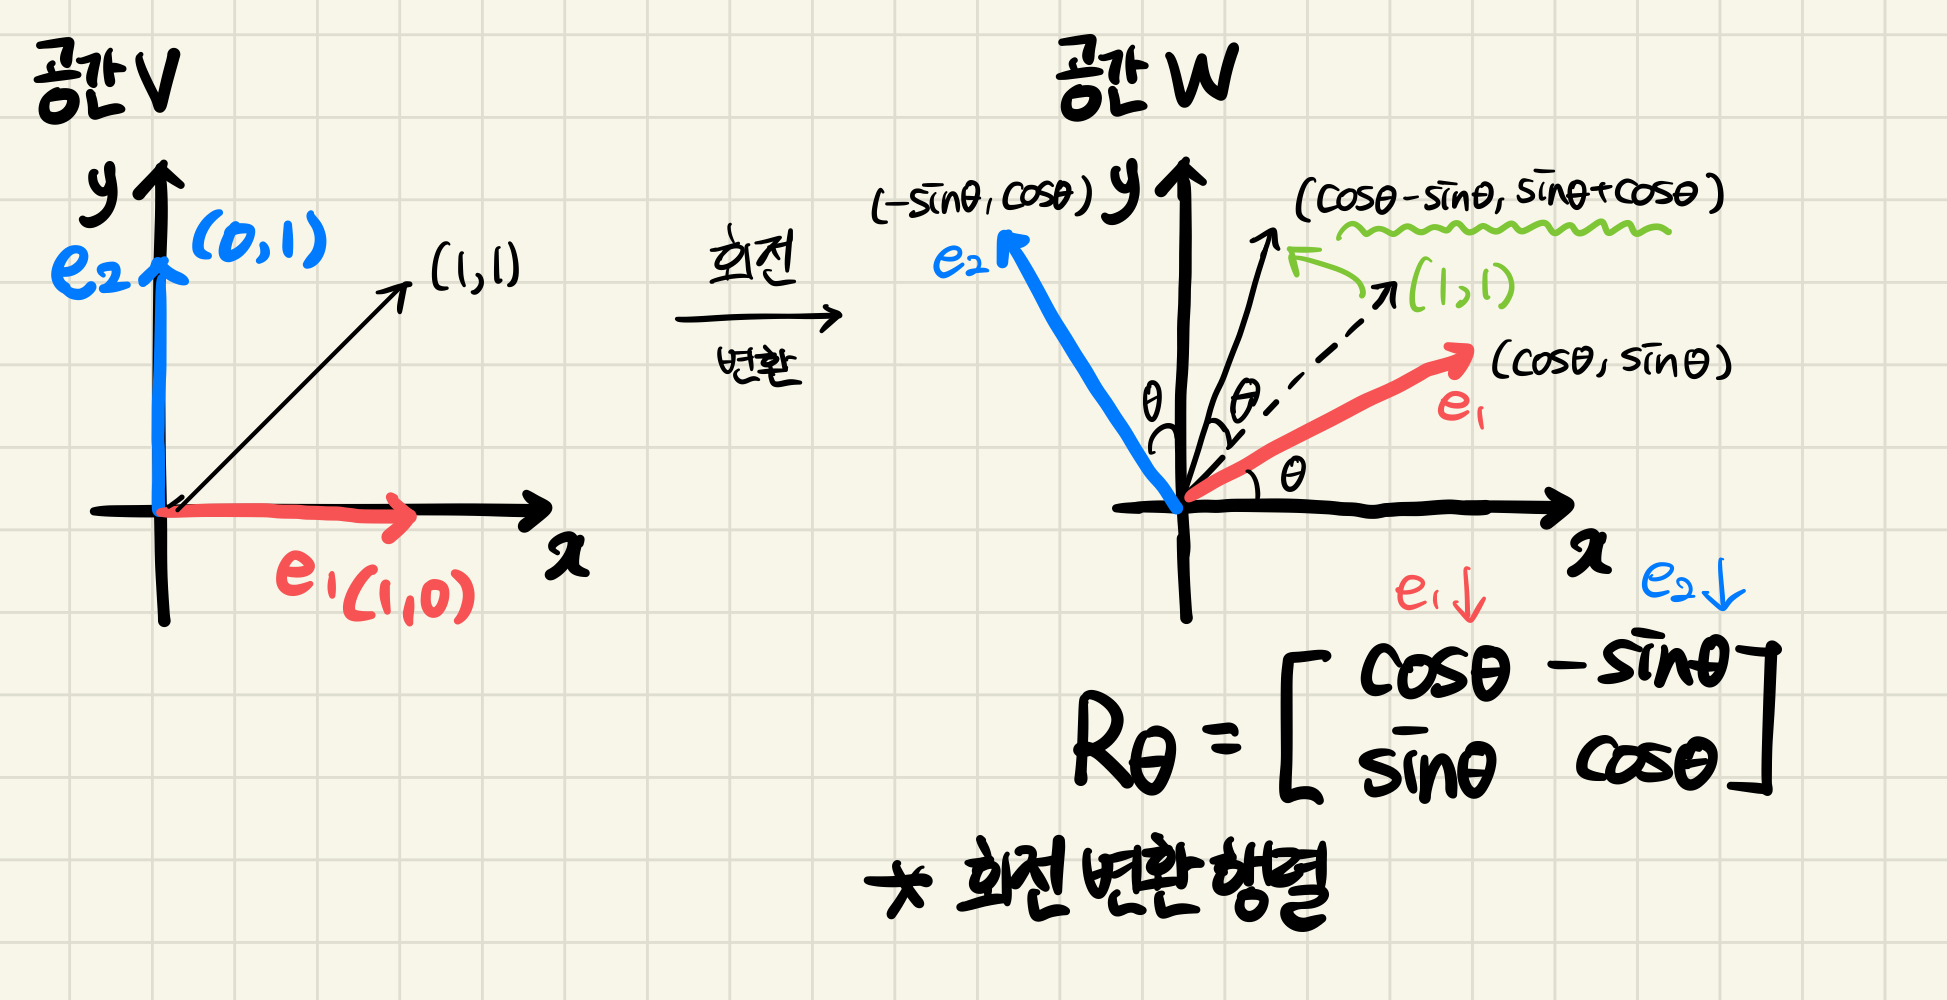 공간 V
y
e₂ (0,1)
(1,1)
e₁(1,0)
x
회전
변환
공간 W
(-sinθ, cosθ)
y
(cosθ-sinθ, sinθ+cosθ)
e₂
(1,1)
(cosθ, sinθ)
e₁
θ
θ
θ
x
e₁↓ e₂↓
Rθ = [ cosθ -sinθ
sinθ cosθ ]
* 회전 변환 행렬